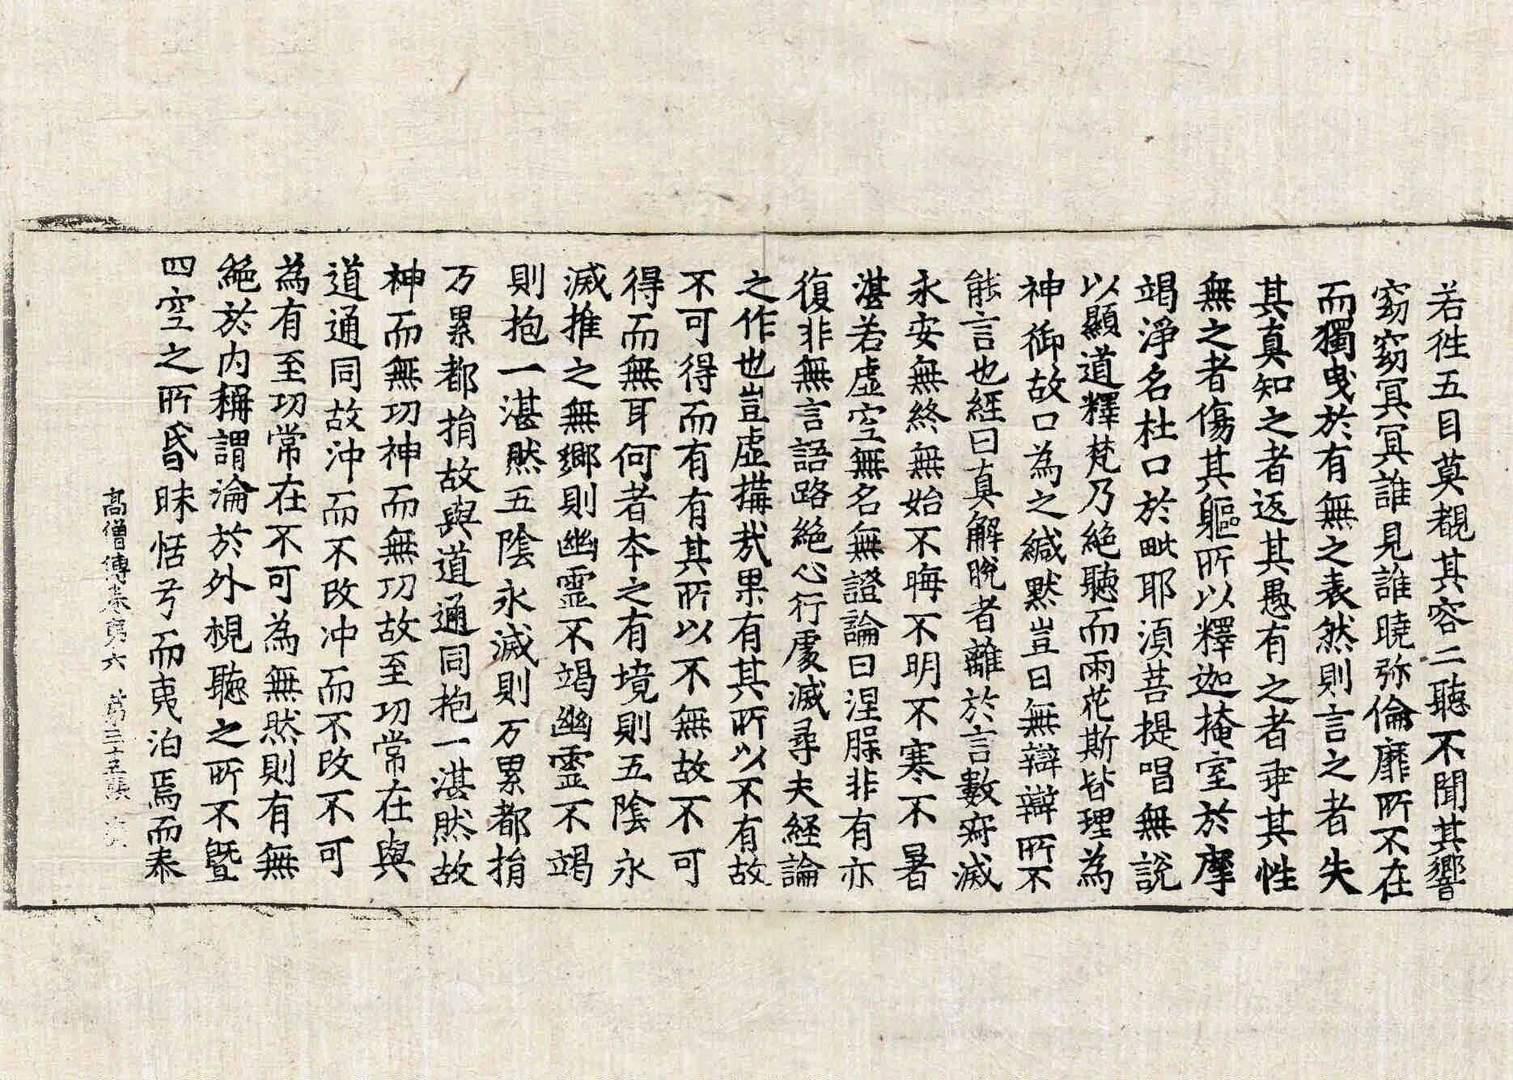 若徃五目莫覩其容二聽不聞其響
窈窈冥冥誰見誰曉弥倫靡所不在
而獨曳於有無之表然則言之者失
其真知之者返其愚有之者乖其性
無之者傷其軀所以釋迦掩室於摩
竭淨名杜口於毗耶湏菩提唱無說
以顯道釋梵乃絕聽而雨花斯皆理為
神御故口為之緘默豈曰無辯辯所不
能言也經曰真解脫者離於言數寂滅
永安無終無始不晦不明不寒不暑
湛若虛空無名無證論曰涅槃非有亦
復非無言語路絕心行處滅尋夫經論
之作也豈虛構哉果有其所以不有故
不可得而有有其所以不無故不可
得而無耳何者本之有境則五陰永
滅推之無鄉則幽靈不竭幽靈不竭
則抱一湛然五陰永滅則万累都捐
万累都捐故與道通同抱一湛然故
神而無功神而無功故至功常在與
道通同故沖而不改冲而不改不可
為有至功常在不可為無然則有無
絕於內稱謂淪於外視聽之所不曁
四空之所昏昧恬兮而夷泊焉而泰
高僧傳卷第六 第三十五張